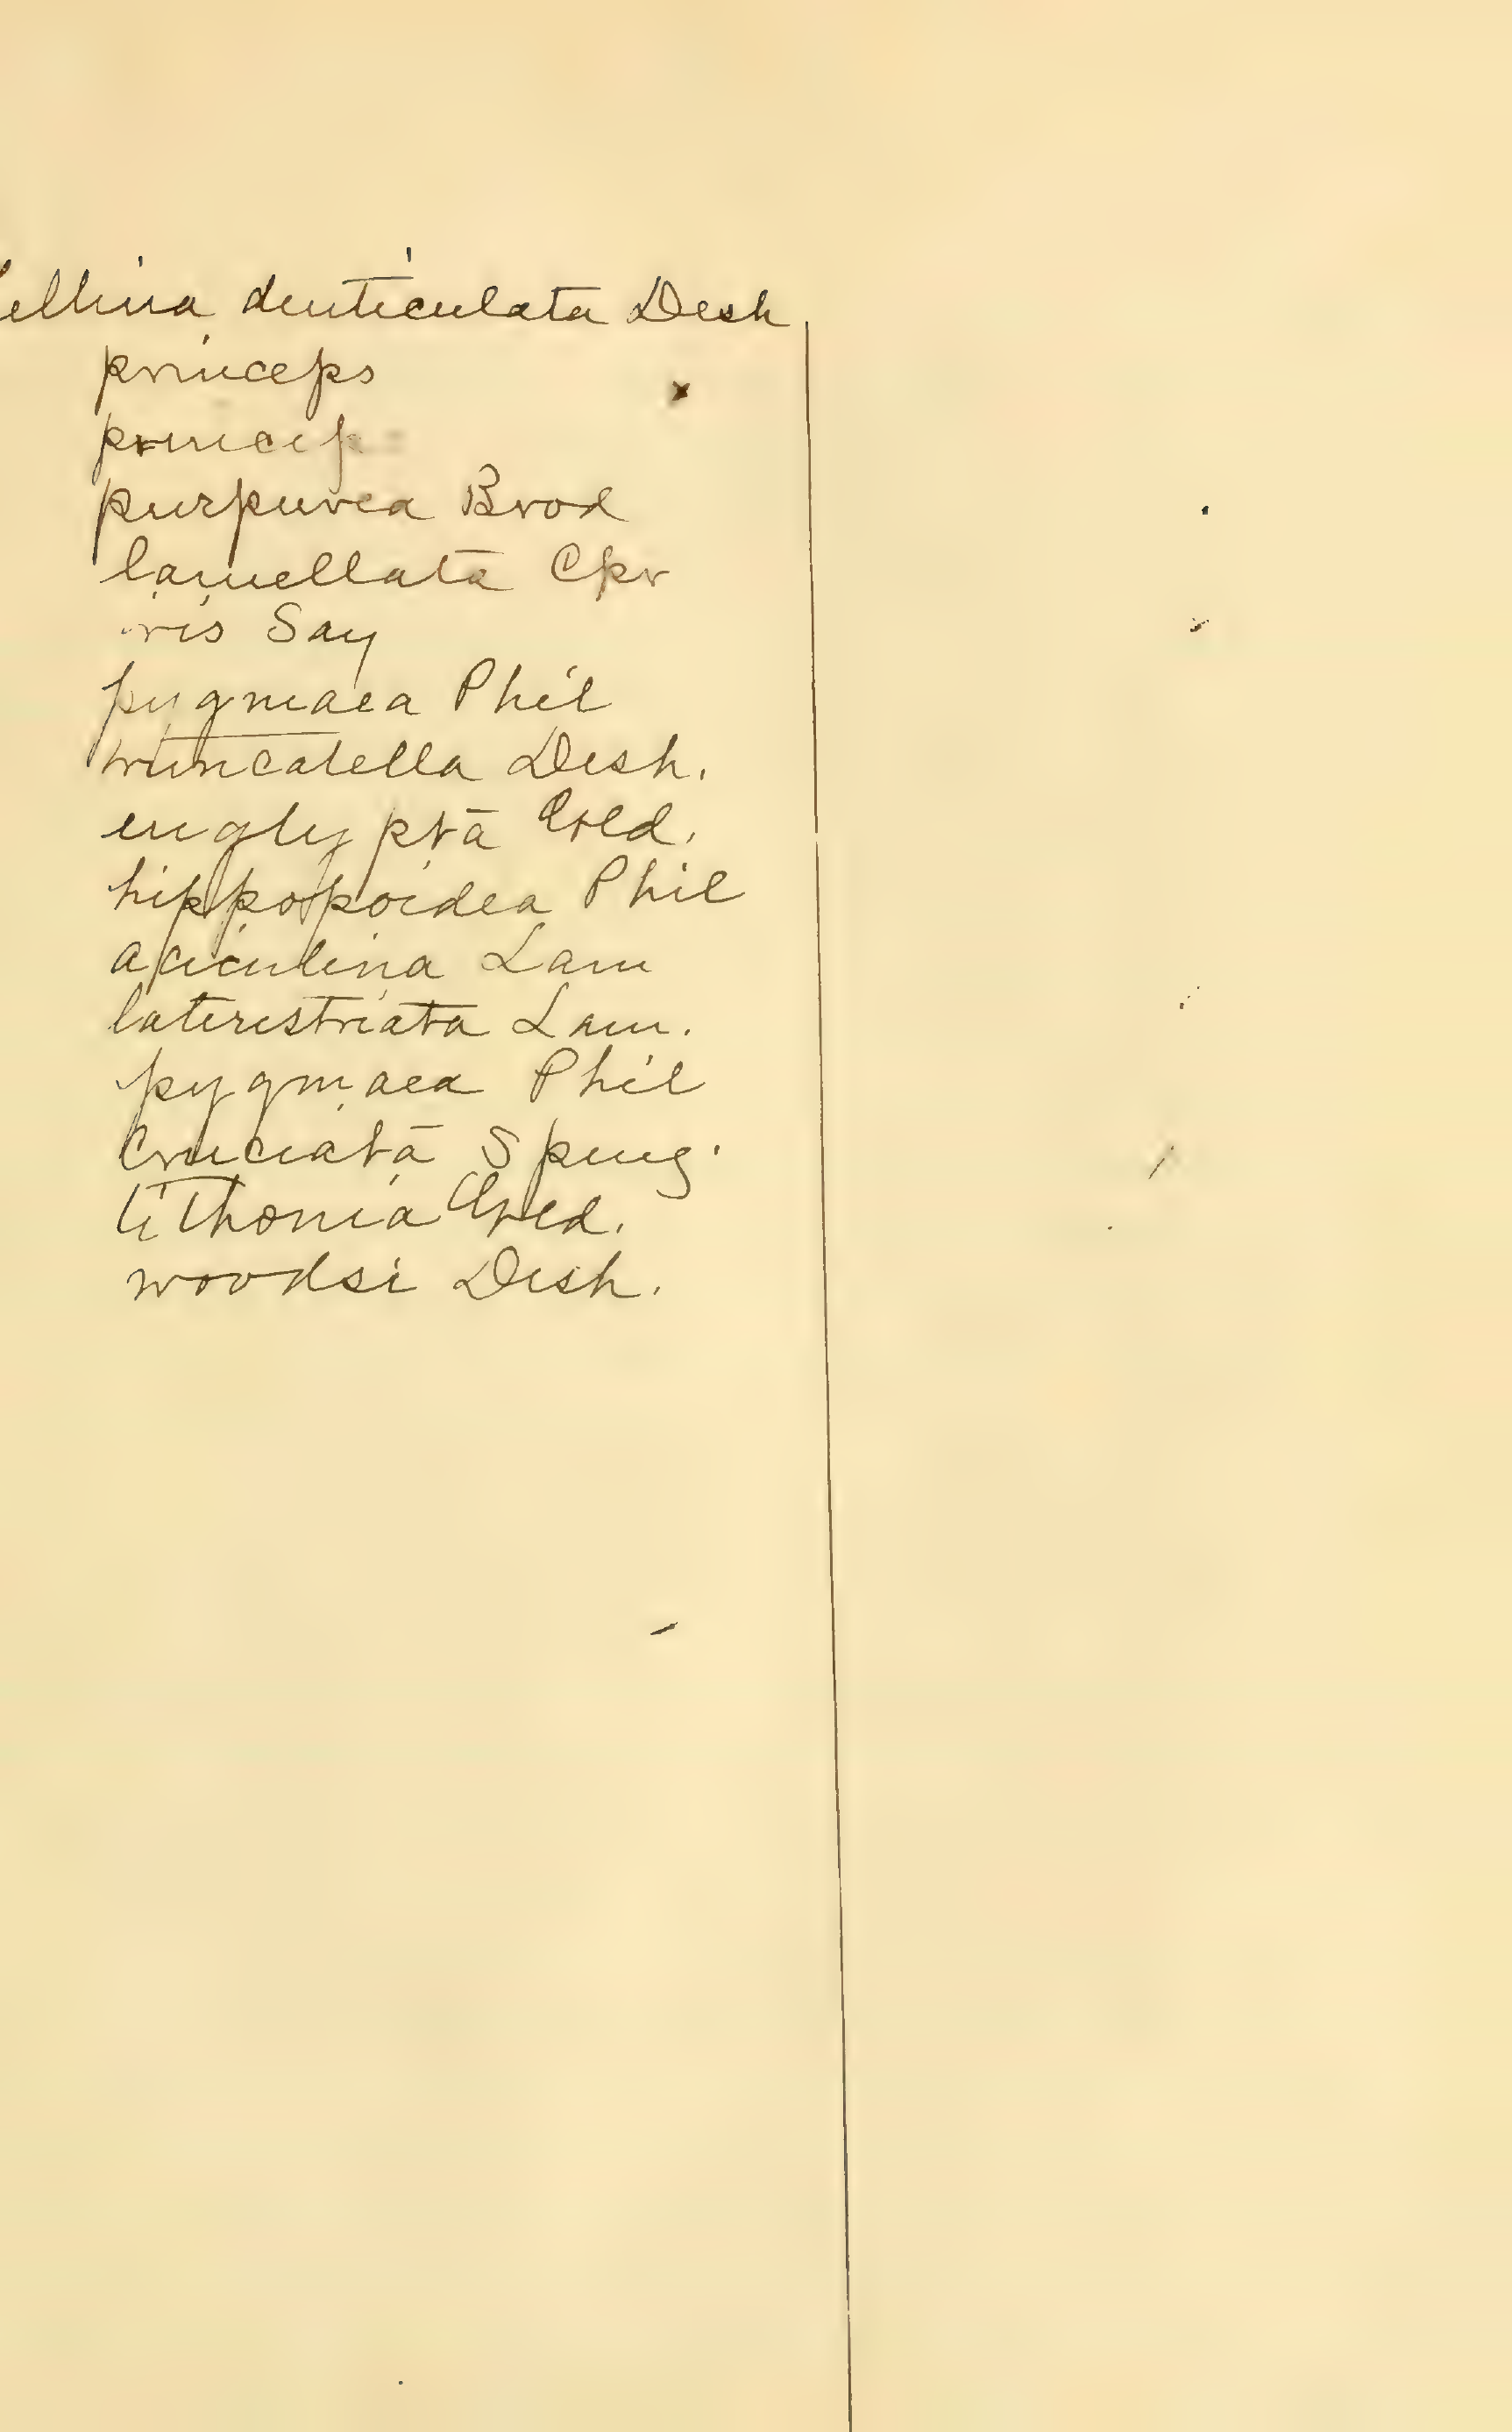 Tellina denticulata Desh
princeps
princip
purpurea Brod
lamellata Cpr
iris Say
pygmaea Phil
truncatella Desh.
euglypta Gld.
hippopoidea Phil
apiculina Lam
laterestriata Lam.
pygmaea Phil
cruciata Speng.
tithonia Gld.
woodsi Desh.